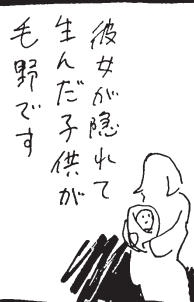 彼女が隠れて
生んだ子供が
毛野です